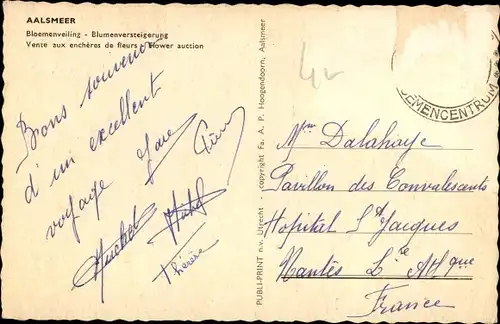 AALSMEER
Bloemenveiling - Blumenversteigerung
Vente aux enchères de fleurs - Flower auction
Bons souvenirs
d'un excellent
voyage
Thérèse
PUBLI-PRINT n.v. Utrecht - copyright Fa. A. P. Hoogendoorn, Aalsmeer
42
OEMENCENTRUM
Mme Dalahaye
Pavillon des Convalescents
Hopital St Jacques
Nantes L. re Atl que
France